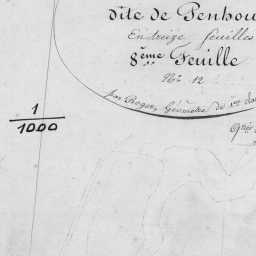 dite de Penhou
En treize feuilles
8ème Feuille
No. 12
par Roger, Géomètre de 1re
1
1000